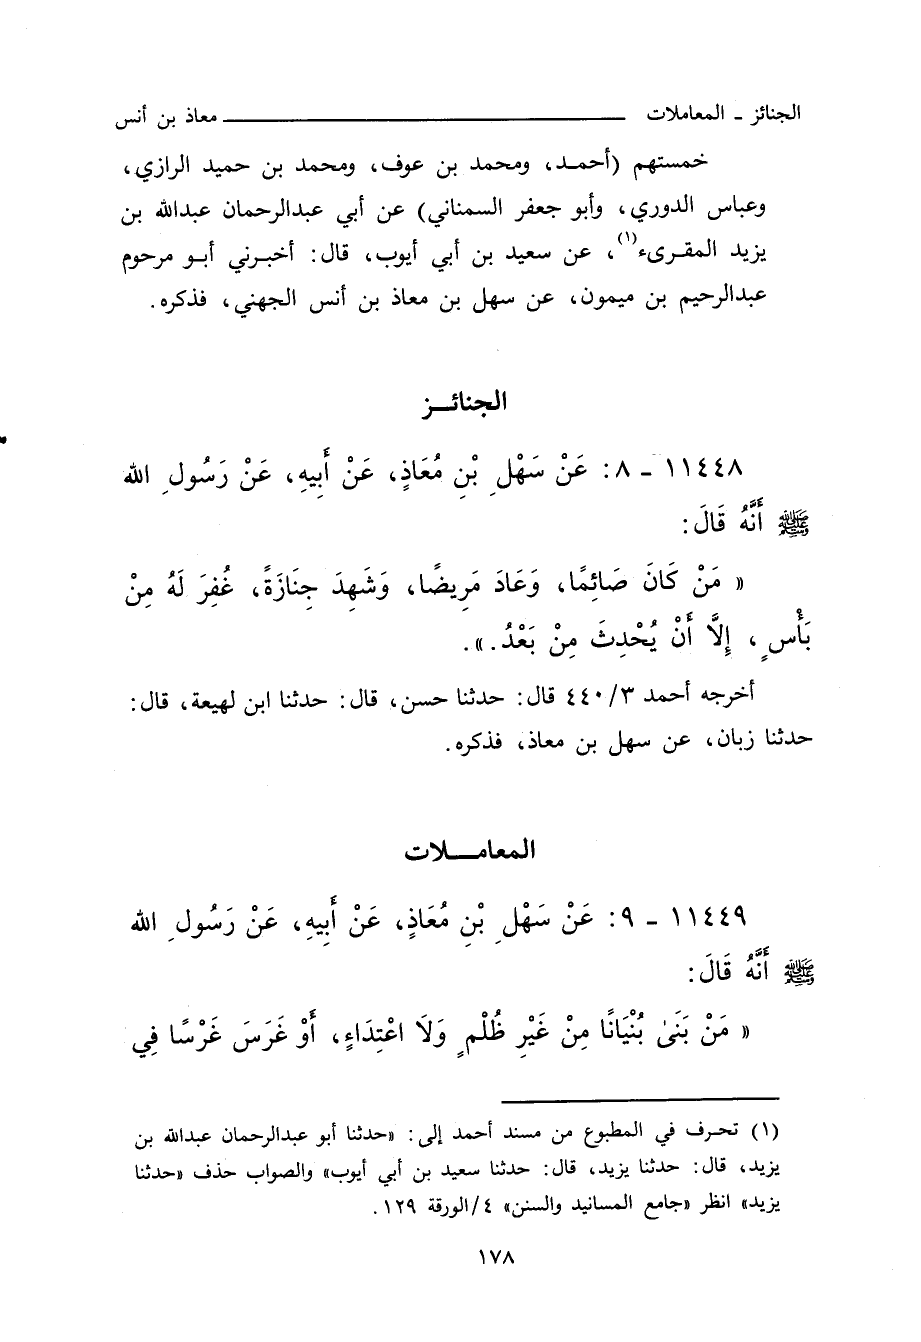 الجنائز ـ المعاملات ــــــــــ معاذ بن أنس
خمستهم (أحمـد، ومحمد بن عوف، ومحمد بن حميد الرازي،
وعباس الدوري، وأبو جعفر السمناني) عن أبي عبدالرحمان عبدالله بن
يزيد المقرىء(١)، عن سعيد بن أبي أيوب، قال: أخبرني أبو مرحوم
عبدالرحيم بن ميمون، عن سهل بن معاذ بن أنس الجهني، فذكره.
الجنائــز
١١٤٤٨ - ٨: عَنْ سَهْلِ بْنِ مُعَاذٍ، عَنْ أَبِيهِ، عَنْ رَسُولِ الله
ﷺ أَنَّهُ قَالَ:
« مَنْ كَانَ صَائِمًا، وَعَادَ مَرِيضًا، وَشَهِدَ جِنَازَةً، غُفِرَ لَهُ مِنْ
بَأْسٍ، إِلَّا أَنْ يُحْدِثَ مِنْ بَعْدُ.».
أخرجه أحمد ٣/ ٤٤٠ قال: حدثنا حسن، قال: حدثنا ابن لهيعة، قال:
حدثنا زبان، عن سهل بن معاذ، فذكره.
المعامــلات
١١٤٤٩ - ٩: عَنْ سَهْلِ بْنِ مُعَاذٍ، عَنْ أَبِيهِ، عَنْ رَسُولِ الله
ﷺ أَنَّهُ قَالَ:
« مَنْ بَنَىٰ بُنْيَانًا مِنْ غَيْرِ ظُلْمٍ وَلَا اعْتِدَاءٍ، أَوْ غَرَسَ غَرْسًا فِي
(١) تحرف في المطبوع من مسند أحمد إلى: «حدثنا أبو عبدالرحمان عبدالله بن
يزيد، قال: حدثنا يزيد، قال: حدثنا سعيد بن أبي أيوب» والصواب حذف «حدثنا
يزيد» انظر «جامع المسانيد والسنن» ٤/الورقة ١٢٩.
١٧٨